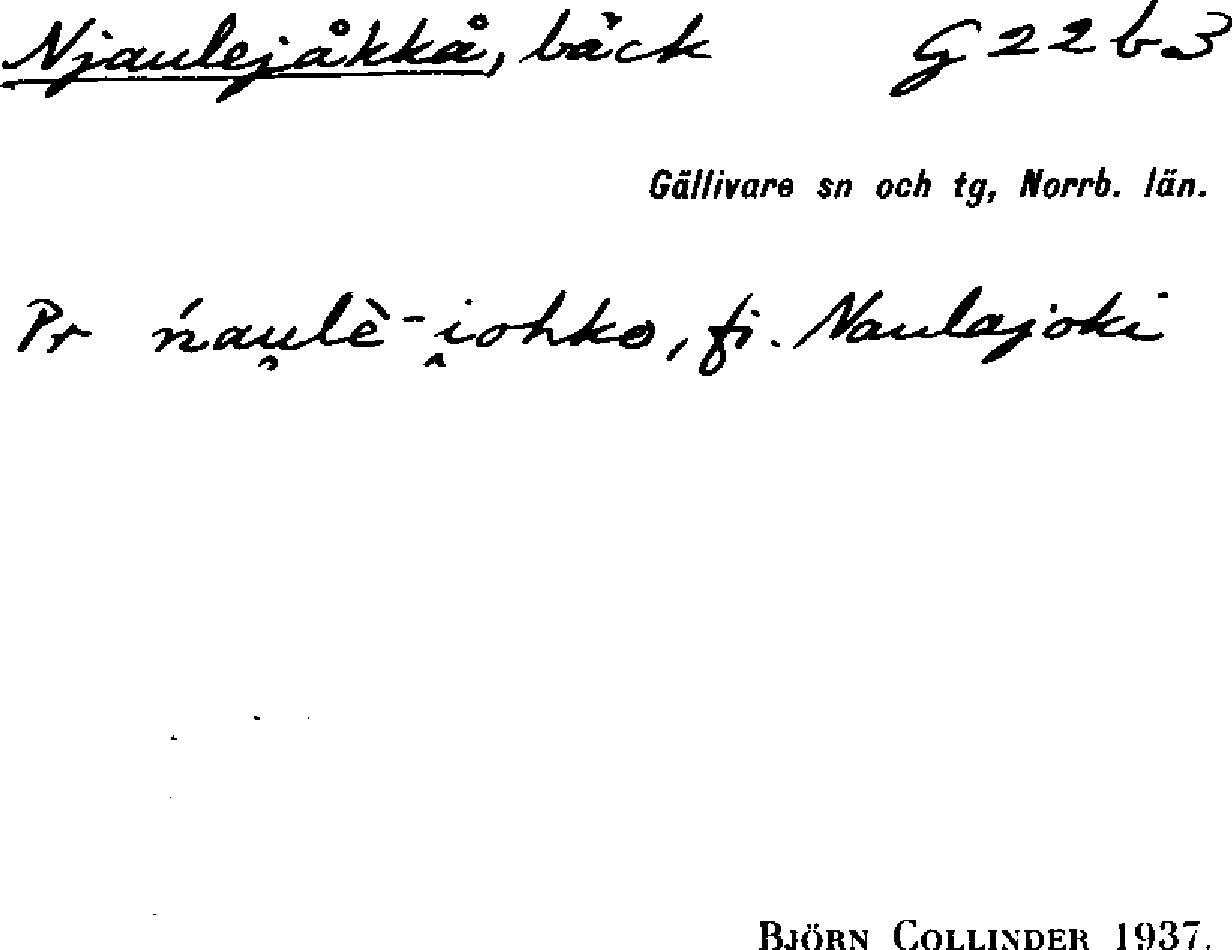 Njaulejåkkå, bäck G 22 b 3
Gällivare sn och tg, Norrb. län.
Pr ńau̯lè-i̯ohko, fi. Naulajoki
BJÖRN COLLINDER 1937.